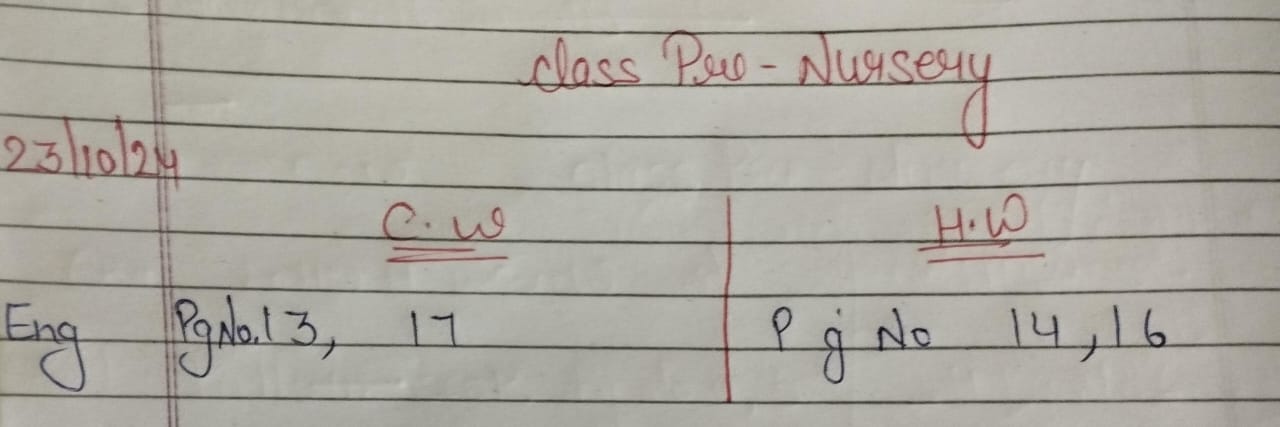 class Pre-Nursery
23/10/24
C.W H.W
Eng Pg No.13, 17 Pg No 14,16